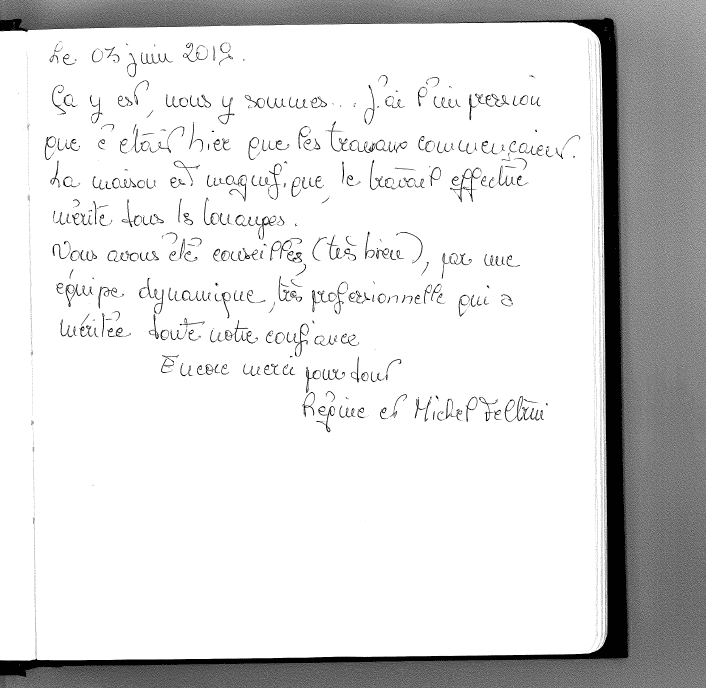 Le 03 juin 2019.
Ça y est, nous y sommes... J'ai l'impression
que c'était hier que les travaux commençaient.
La maison est magnifique, le travail effectué
mérite tous ls louanges.
Nous avons été conseillés, (très bien), par une
équipe dynamique, très professionnelle qui a
méritée toute notre confiance
Encore merci pour tout
Régine et Michel Feltrini